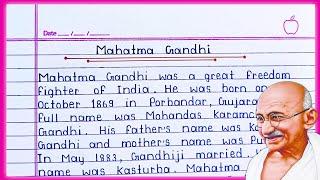 Date / /
Mahatma Gandhi
Mahatma Gandhi was a great freedom
fighter of India. He was born on
October 1869 in Porbandar, Gujara
full name was Mohandas Karamc
Gandhi. His father's name was Ka
Gandhi and mother's name was Pu
In May 1983, Gandhiji married.
name was Kasturba. Mahatma